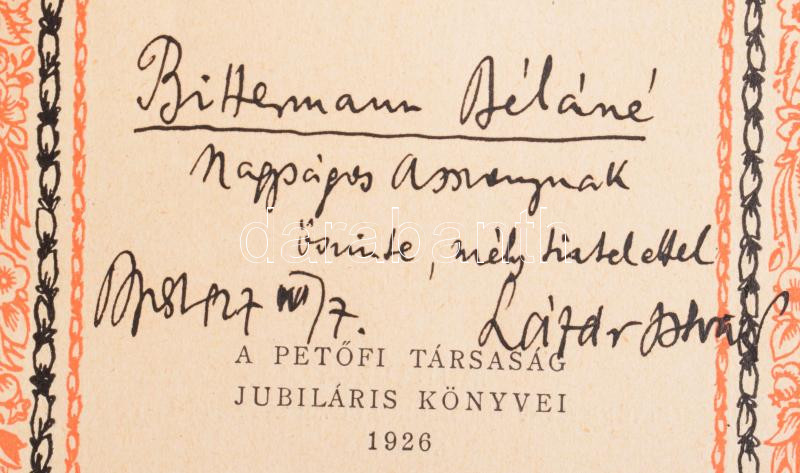 Bittermann Béláné
Nagyságos Asszonynak
őszinte, mély tisztelettel
Bpest 927 VII/7.
Lázár István
A PETŐFI TÁRSASÁG
JUBILÁRIS KÖNYVEI
1926
darabanth